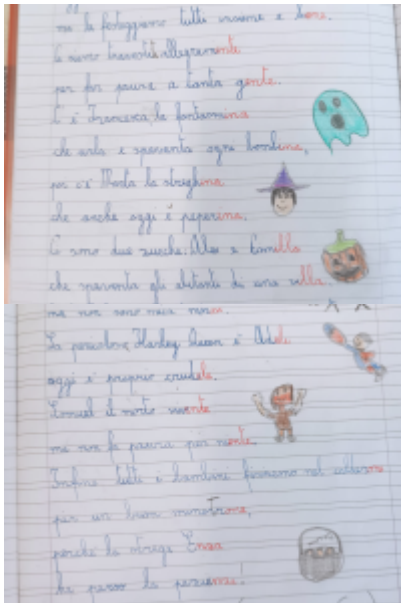 ma la festeggiamo tutti insieme e bene.
Ci siamo travestiti allegramente
per far paura a tanta gente.
C'è Francesca la fantasmina
che urla e spaventa ogni bambina,
poi c'è Marta la streghina
che anche oggi è peperina.
Ci sono due zucche: Alex e Camilla
che spaventa gli abitanti di una villa.
ma non sono mica
La pericolosa Harley Queen è Adele
oggi è proprio crudele.
il morto vivente
ma non fa paura per niente.
Infine tutti i bambini finiranno nel calderone
per un buon minestrone,
perché la strega Enza
ha perso la pazienza!